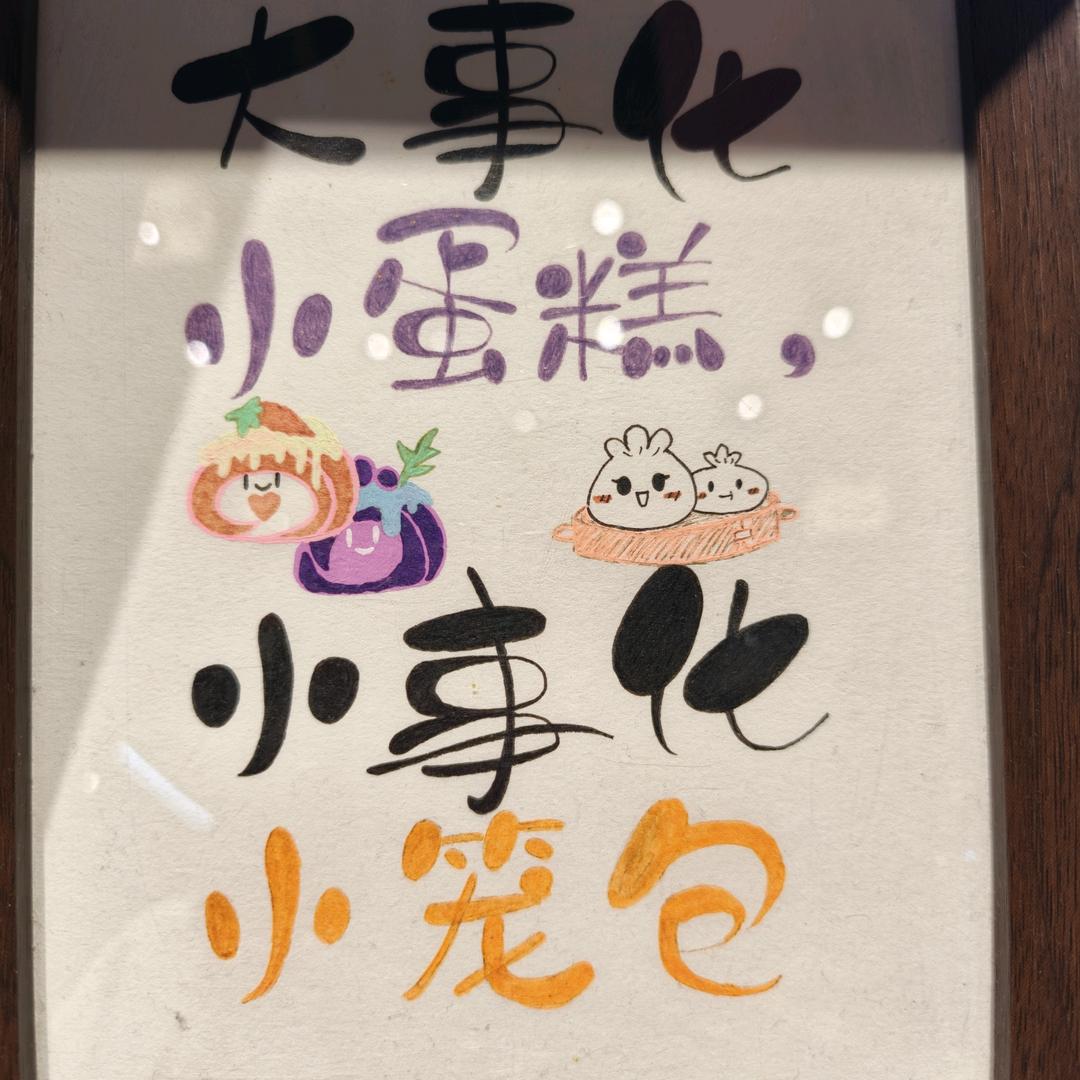 大事化
小蛋糕，
小事化
小笼包